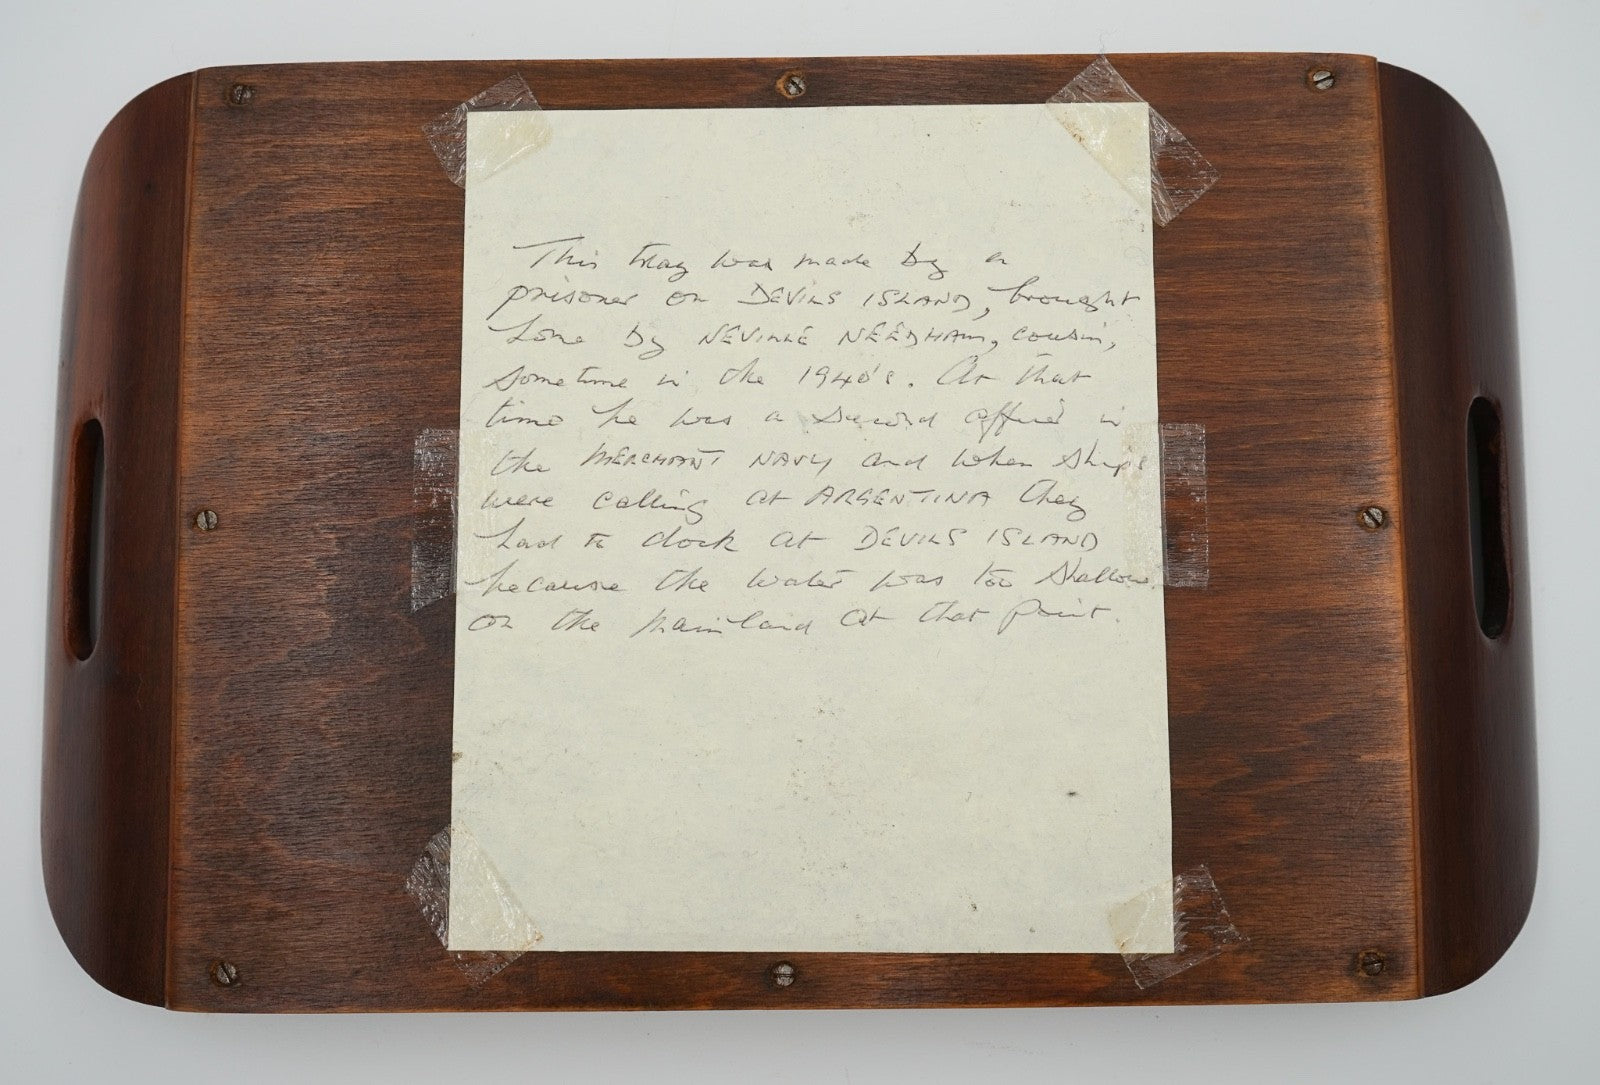 This tray was made by a
prisoner on DEVILS ISLAND, brought
home by NEVILLE NEEDHAM, cousin,
sometime in the 1940's. At that
time he was a second officer in
the MERCHANT NAVY and when ships
were calling at ARGENTINA they
had to dock at DEVILS ISLAND
because the water was too shallow
on the mainland at that point.